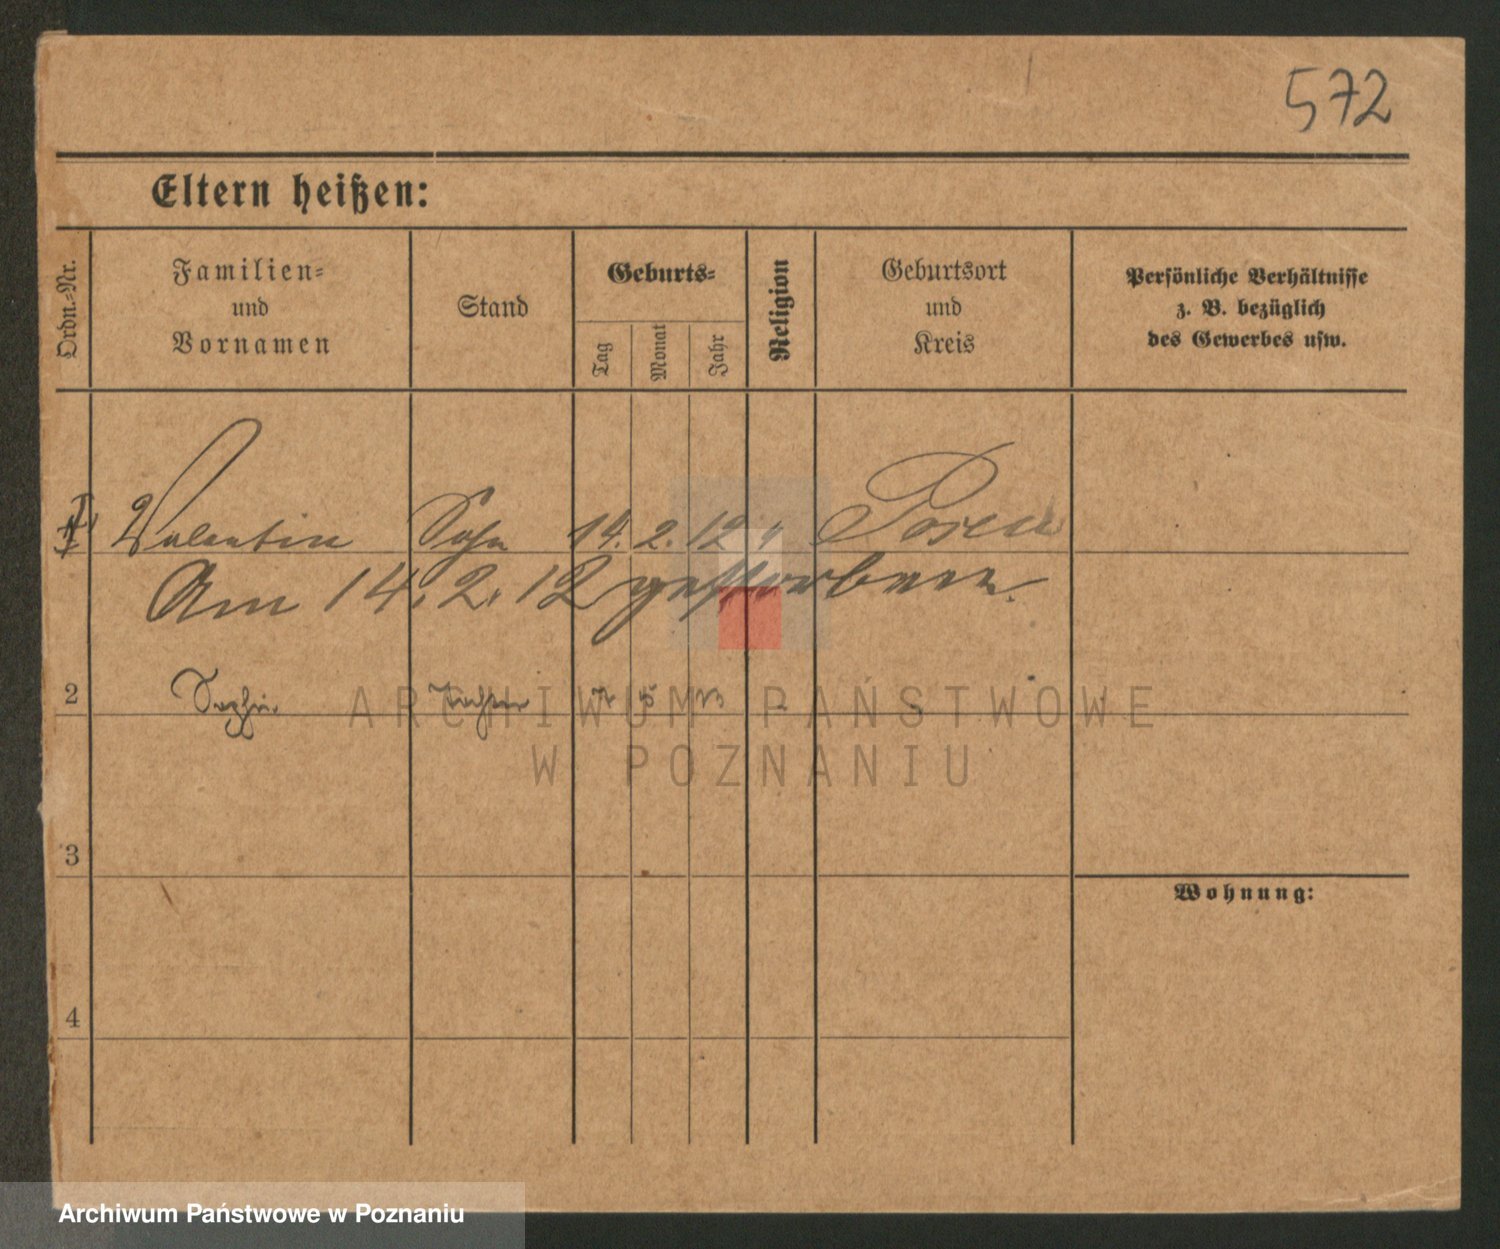 572
Eltern heißen:
Ordn.-Nr.
Familien-
und
Vornamen
Stand
Geburts-
Tag
Monat
Jahr
Religion
Geburtsort
und
Kreis
Persönliche Verhältnisse
z. B. bezüglich
des Gewerbes usw.
Valentin Sohn 14. 2. 12 " Posen
Am 14. 2. 12 gestorben.
2 Sophie Tochter 5 13
ARCHIWUM PAŃSTWOWE
W POZNANIU
3
Wohnung:
4
Archiwum Państwowe w Poznaniu